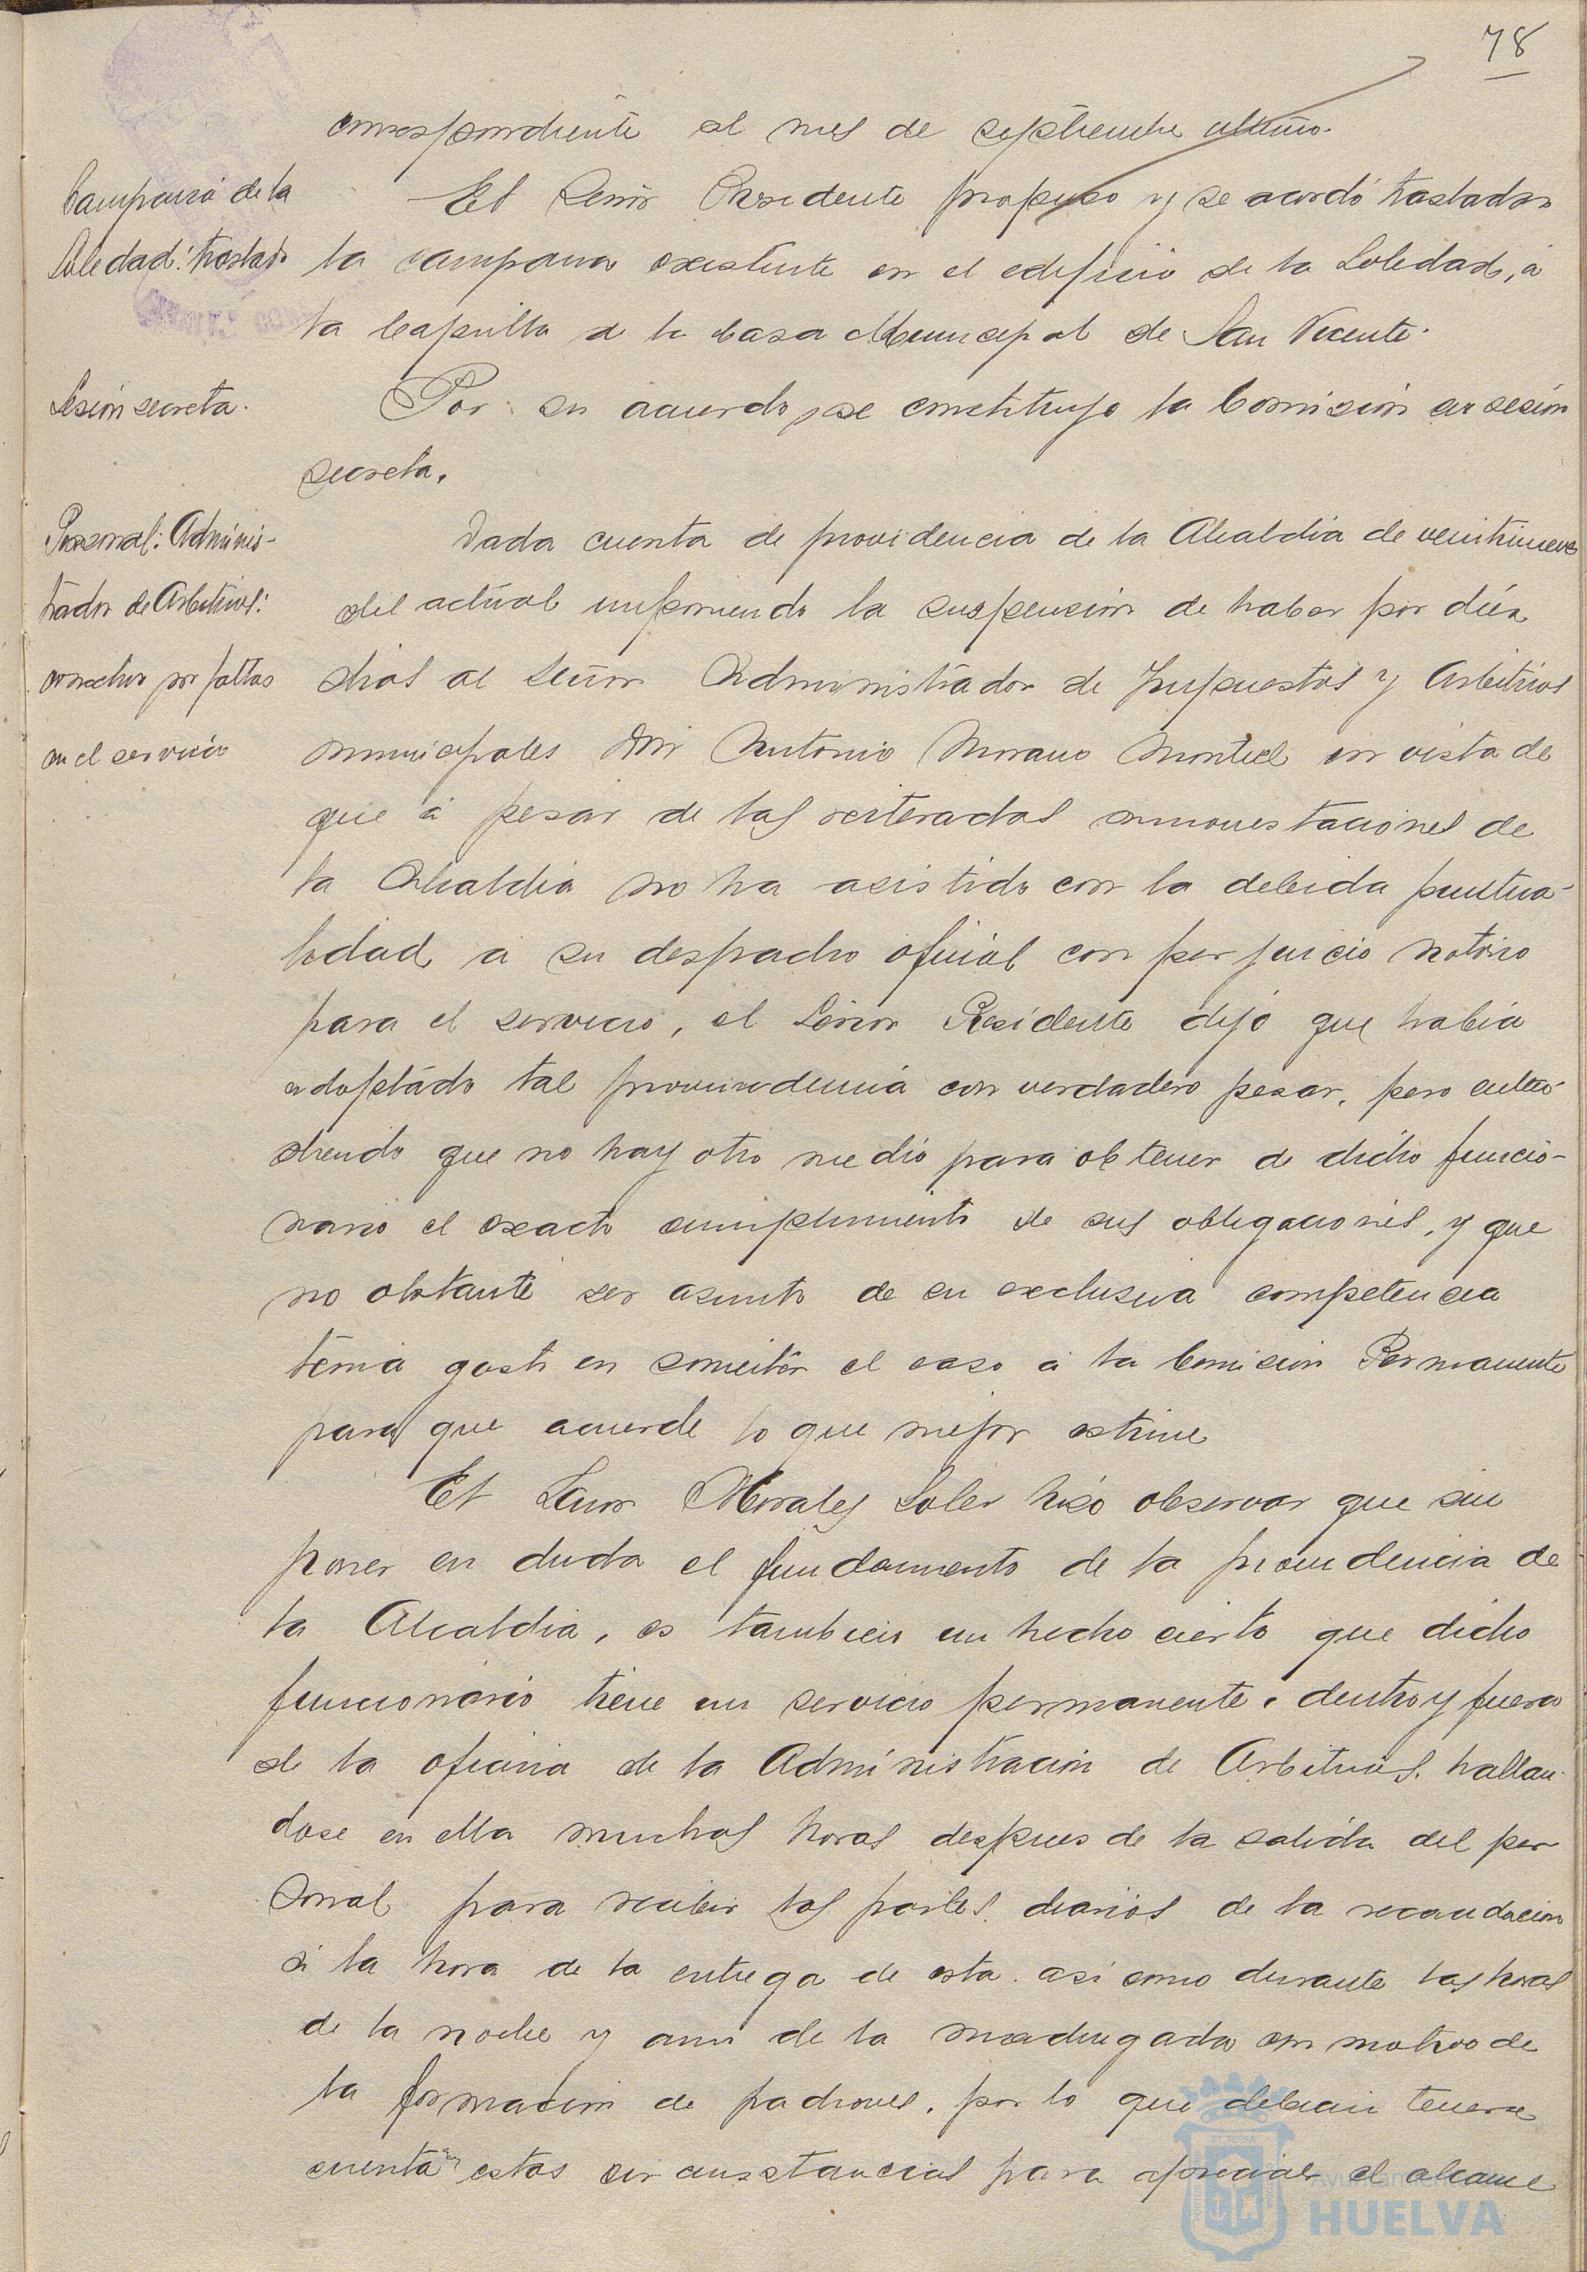 78
correspondiente al mes de septiembre ultimo.
Campana de la
Soledad: traslado
El Señor Presidente propuso y se acordó trasladar
la campana existente en el edificio de la Soledad, á
la Capilla de la Casa Municipal de San Vicente.
Sesión secreta.
Por su acuerdo, se constituyó la Comisión en sesión
secreta.
Personal: Adminis-
trador de Arbitrios:
correctivo por faltas
en el servicio
Dada cuenta de providencia de la Alcaldia de veintinueve
del actual imponiendo la suspensión de haber por diez
dias al Señor Administrador de Impuestos y Arbitrios
municipales Don Antonio Morano Montiel en vista de
que á pesar de las reiteradas amonestaciones de
la Alcaldia no ha asistido con la debida puntua-
lidad á su despacho oficial con perjuicio notorio
para el servicio, el Señor Presidente dijo que habia
adoptado tal providencia con verdadero pesar, pero enten-
diendo que no hay otro medio para obtener de dicho funcio-
nario el exacto cumplimiento de sus obligaciones, y que
no obstante ser asunto de su exclusiva competencia
tenia gusto en someter el caso á la Comision Permanente
para que acuerde lo que mejor estime
El Señor Morales Soler hizo observar que sin
poner en duda el fundamento de la providencia de
la Alcaldia, es tambien un hecho cierto que dicho
funcionario tiene un servicio permanente dentro y fuera
de la oficina de la Administracion de Arbitrios, hallan-
dose en ella muchas horas despues de la salida del per-
sonal para recibir los partes diarios de la recaudacion
á la hora de la entrega de esta, asi como durante las horas
de la noche y aun de la madrugada con motivo de
la formacion de padrones, por lo que debian tenerse
en cuenta estas circunstancias para apreciar el alcance
Ayuntamiento de
HUELVA